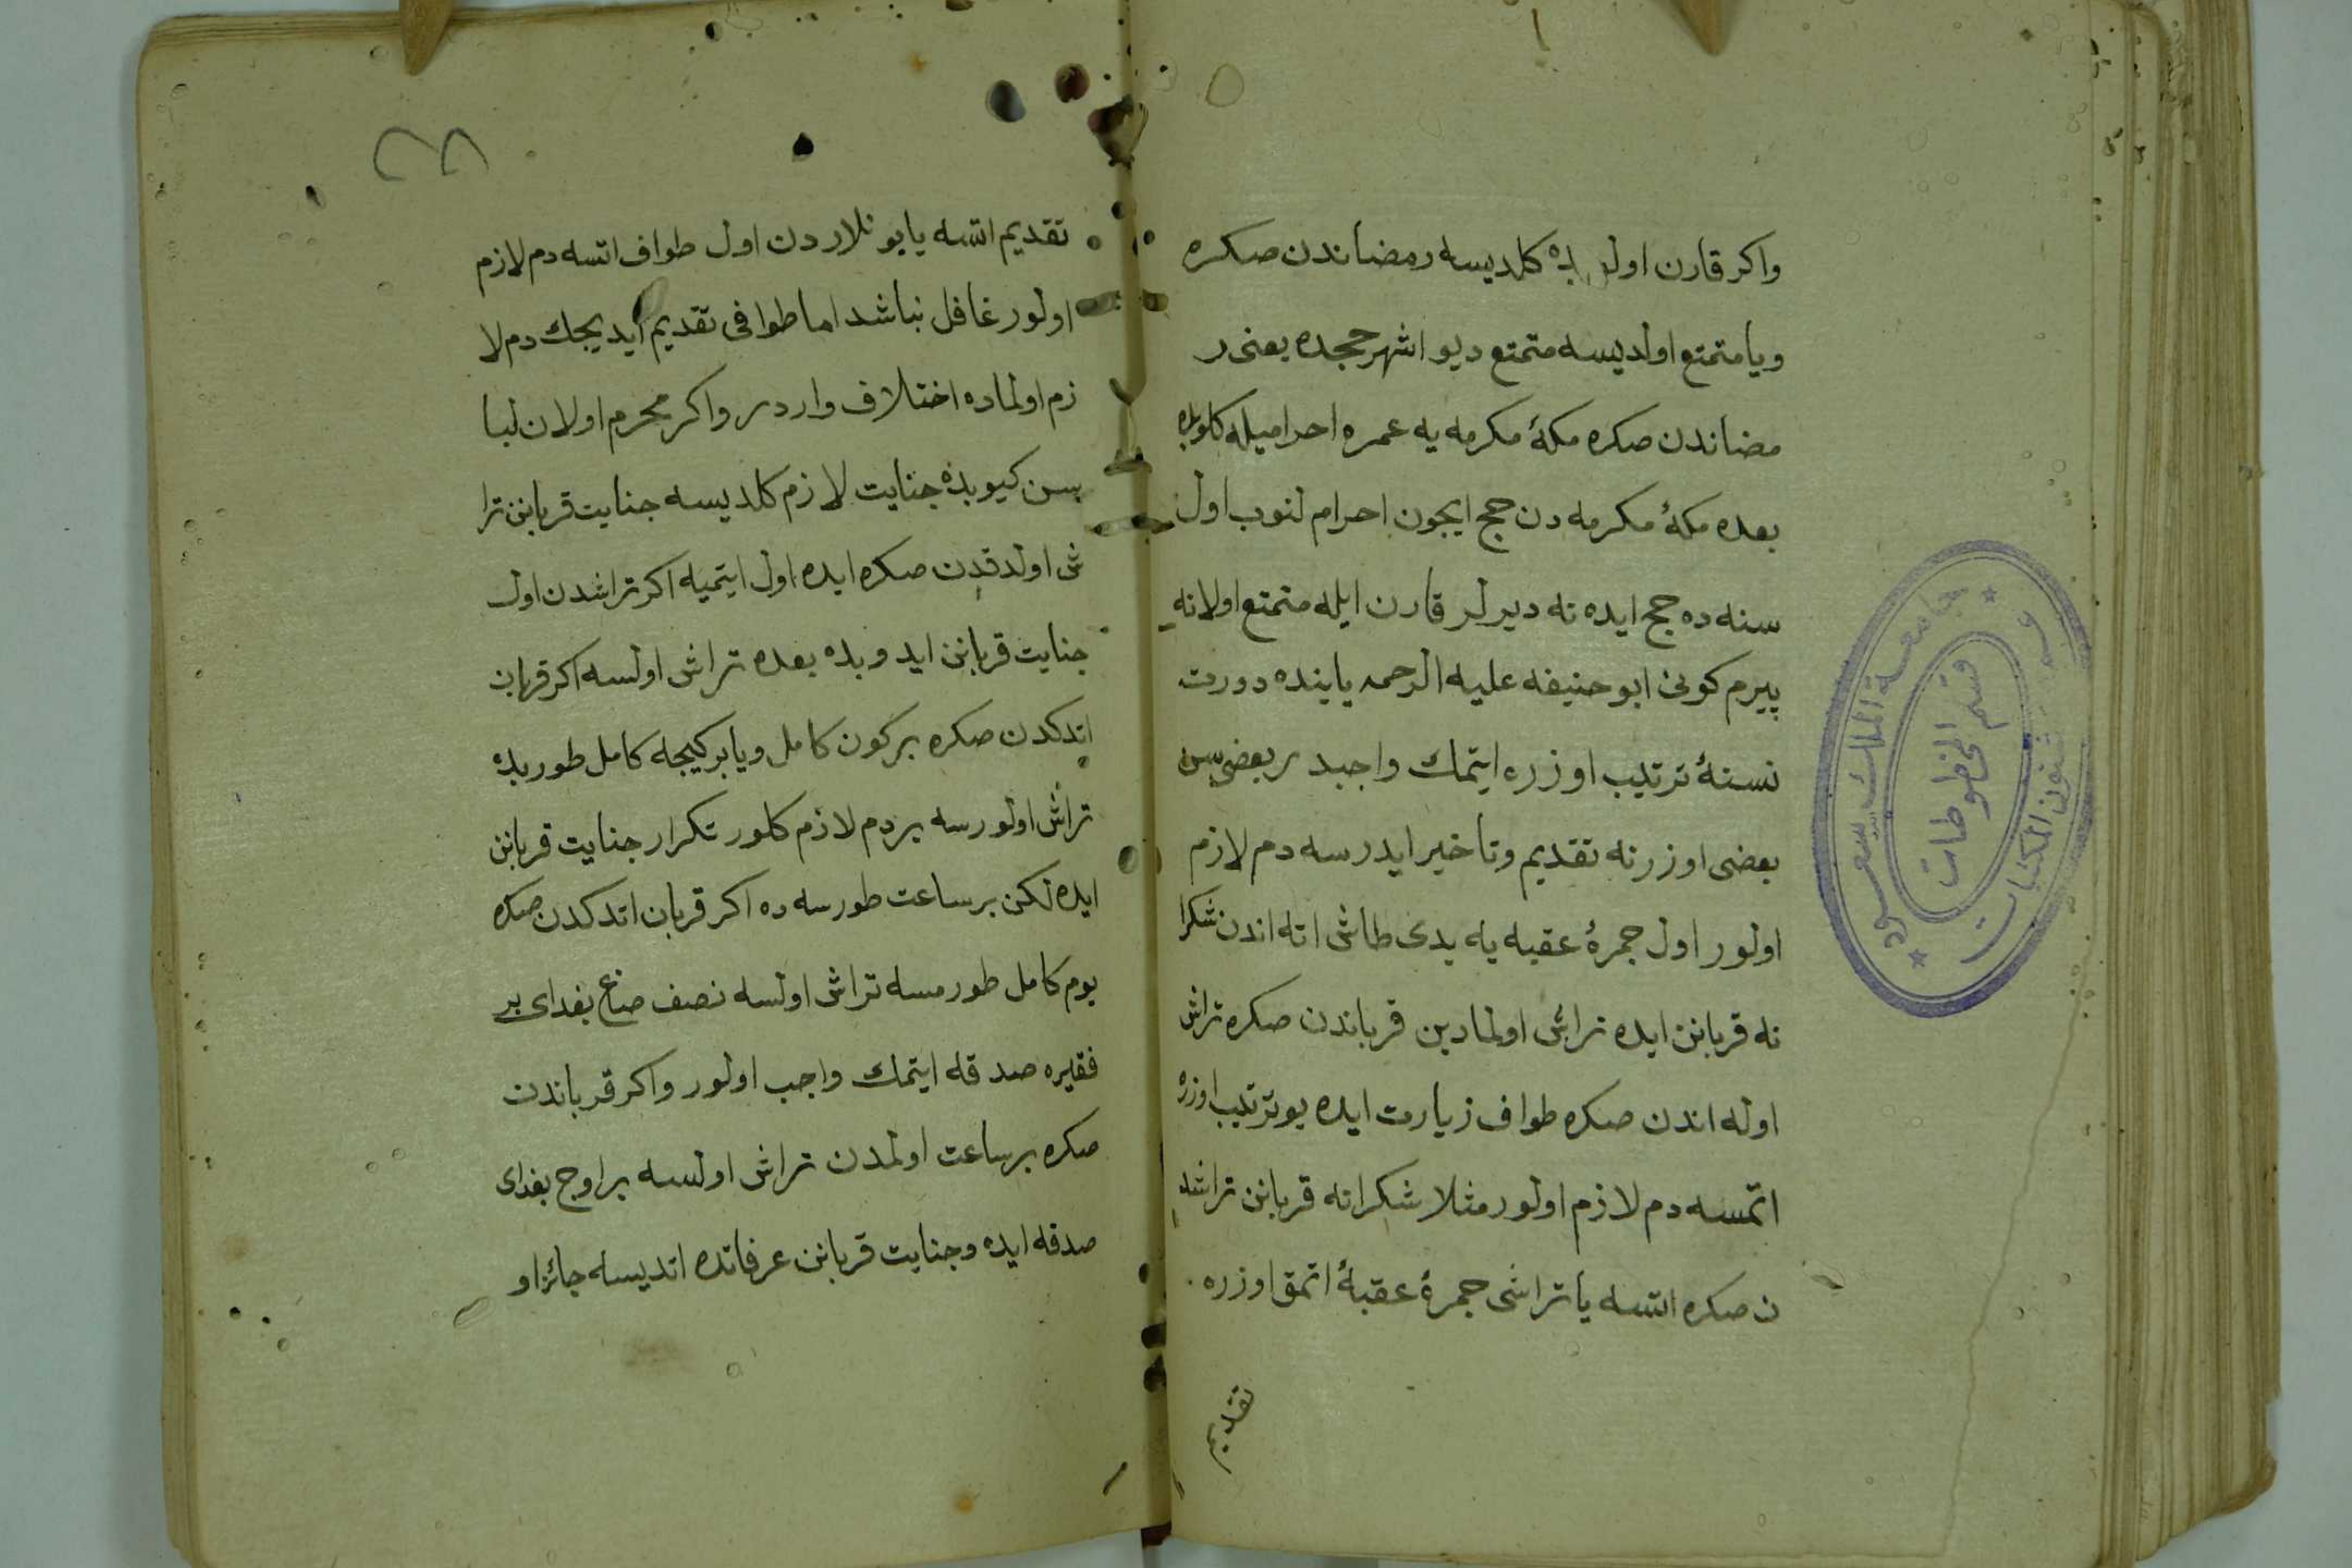 واكر قارن اولوبده كلديسه رمضاندن صكره
ويا متمتع اولديسه متمتع ديو اشهر حجده يعنى ر
مضاندن صكره مكهٔ مكرمه يه عمره احراميله كلوبده
بعده مكهٔ مكرمه دن حج ايچون احرام لنوب اول
سنه ده حج ايده نه ديرلر قارن ايله متمتع اولانه
بيرم كونى ابو حنيفه عليه الرحمه ياينده دورت
نسنهٔ ترتيب اوزره ايتمك واجبد ر بعضى سن
بعضى اوزرنه تقديم وتأخير ايدرسه دم لازم
اولور اول جمرهٔ عقبه يه يدى طاشى اته اندن شكرا
نه قربانن ايده تراش اولمادين قرباندن صكره تراش
اوله اندن صكره طواف زيارت ايده بو ترتيب اوزره
اتمسه دم لازم اولور مثلا شكرانه قربانن تراشد
ن صكره اتسه يا تراشى جمرهٔ عقبهٔ اتمق اوزره
تقديم
تقديم اتسه يا بونلاردن اول طواف اتسه دم لازم
اولور غافل نباشد اما طوافى تقديم ايديجك دم لا
زم اولماده اختلاف واردر واكر محرم اولان لبا
سن كيوبده جنايت لازم كلديسه جنايت قربانن ترا
ش اولدقدن صكره ايده اول ايتميه اكر تراشدن اول
جنايت قربانن ايدوبده بعده تراش اولسه اكر قربان
اتدكدن صكره بر كون كامل ويا بر كيجه كامل طوربده
تراش اولورسه بر دم لازم كلور تكرار جنايت قربانن
ايده لكن بر ساعت طورسه ده اكر قربان اتدكدن صكره
يوم كامل طورمسه تراش اولسه نصف صاع بغداى بر
فقيره صدقه ايتمك واجب اولور واكر قرباندن
صكره بر ساعت اولمدن تراش اولسه بر اوج بغداى
صدقه ايده وجنايت قربانن عرفاتده اتديسه جائز او
جامعة الملك سعود
شئون المكتبات
قسم المخطوطات